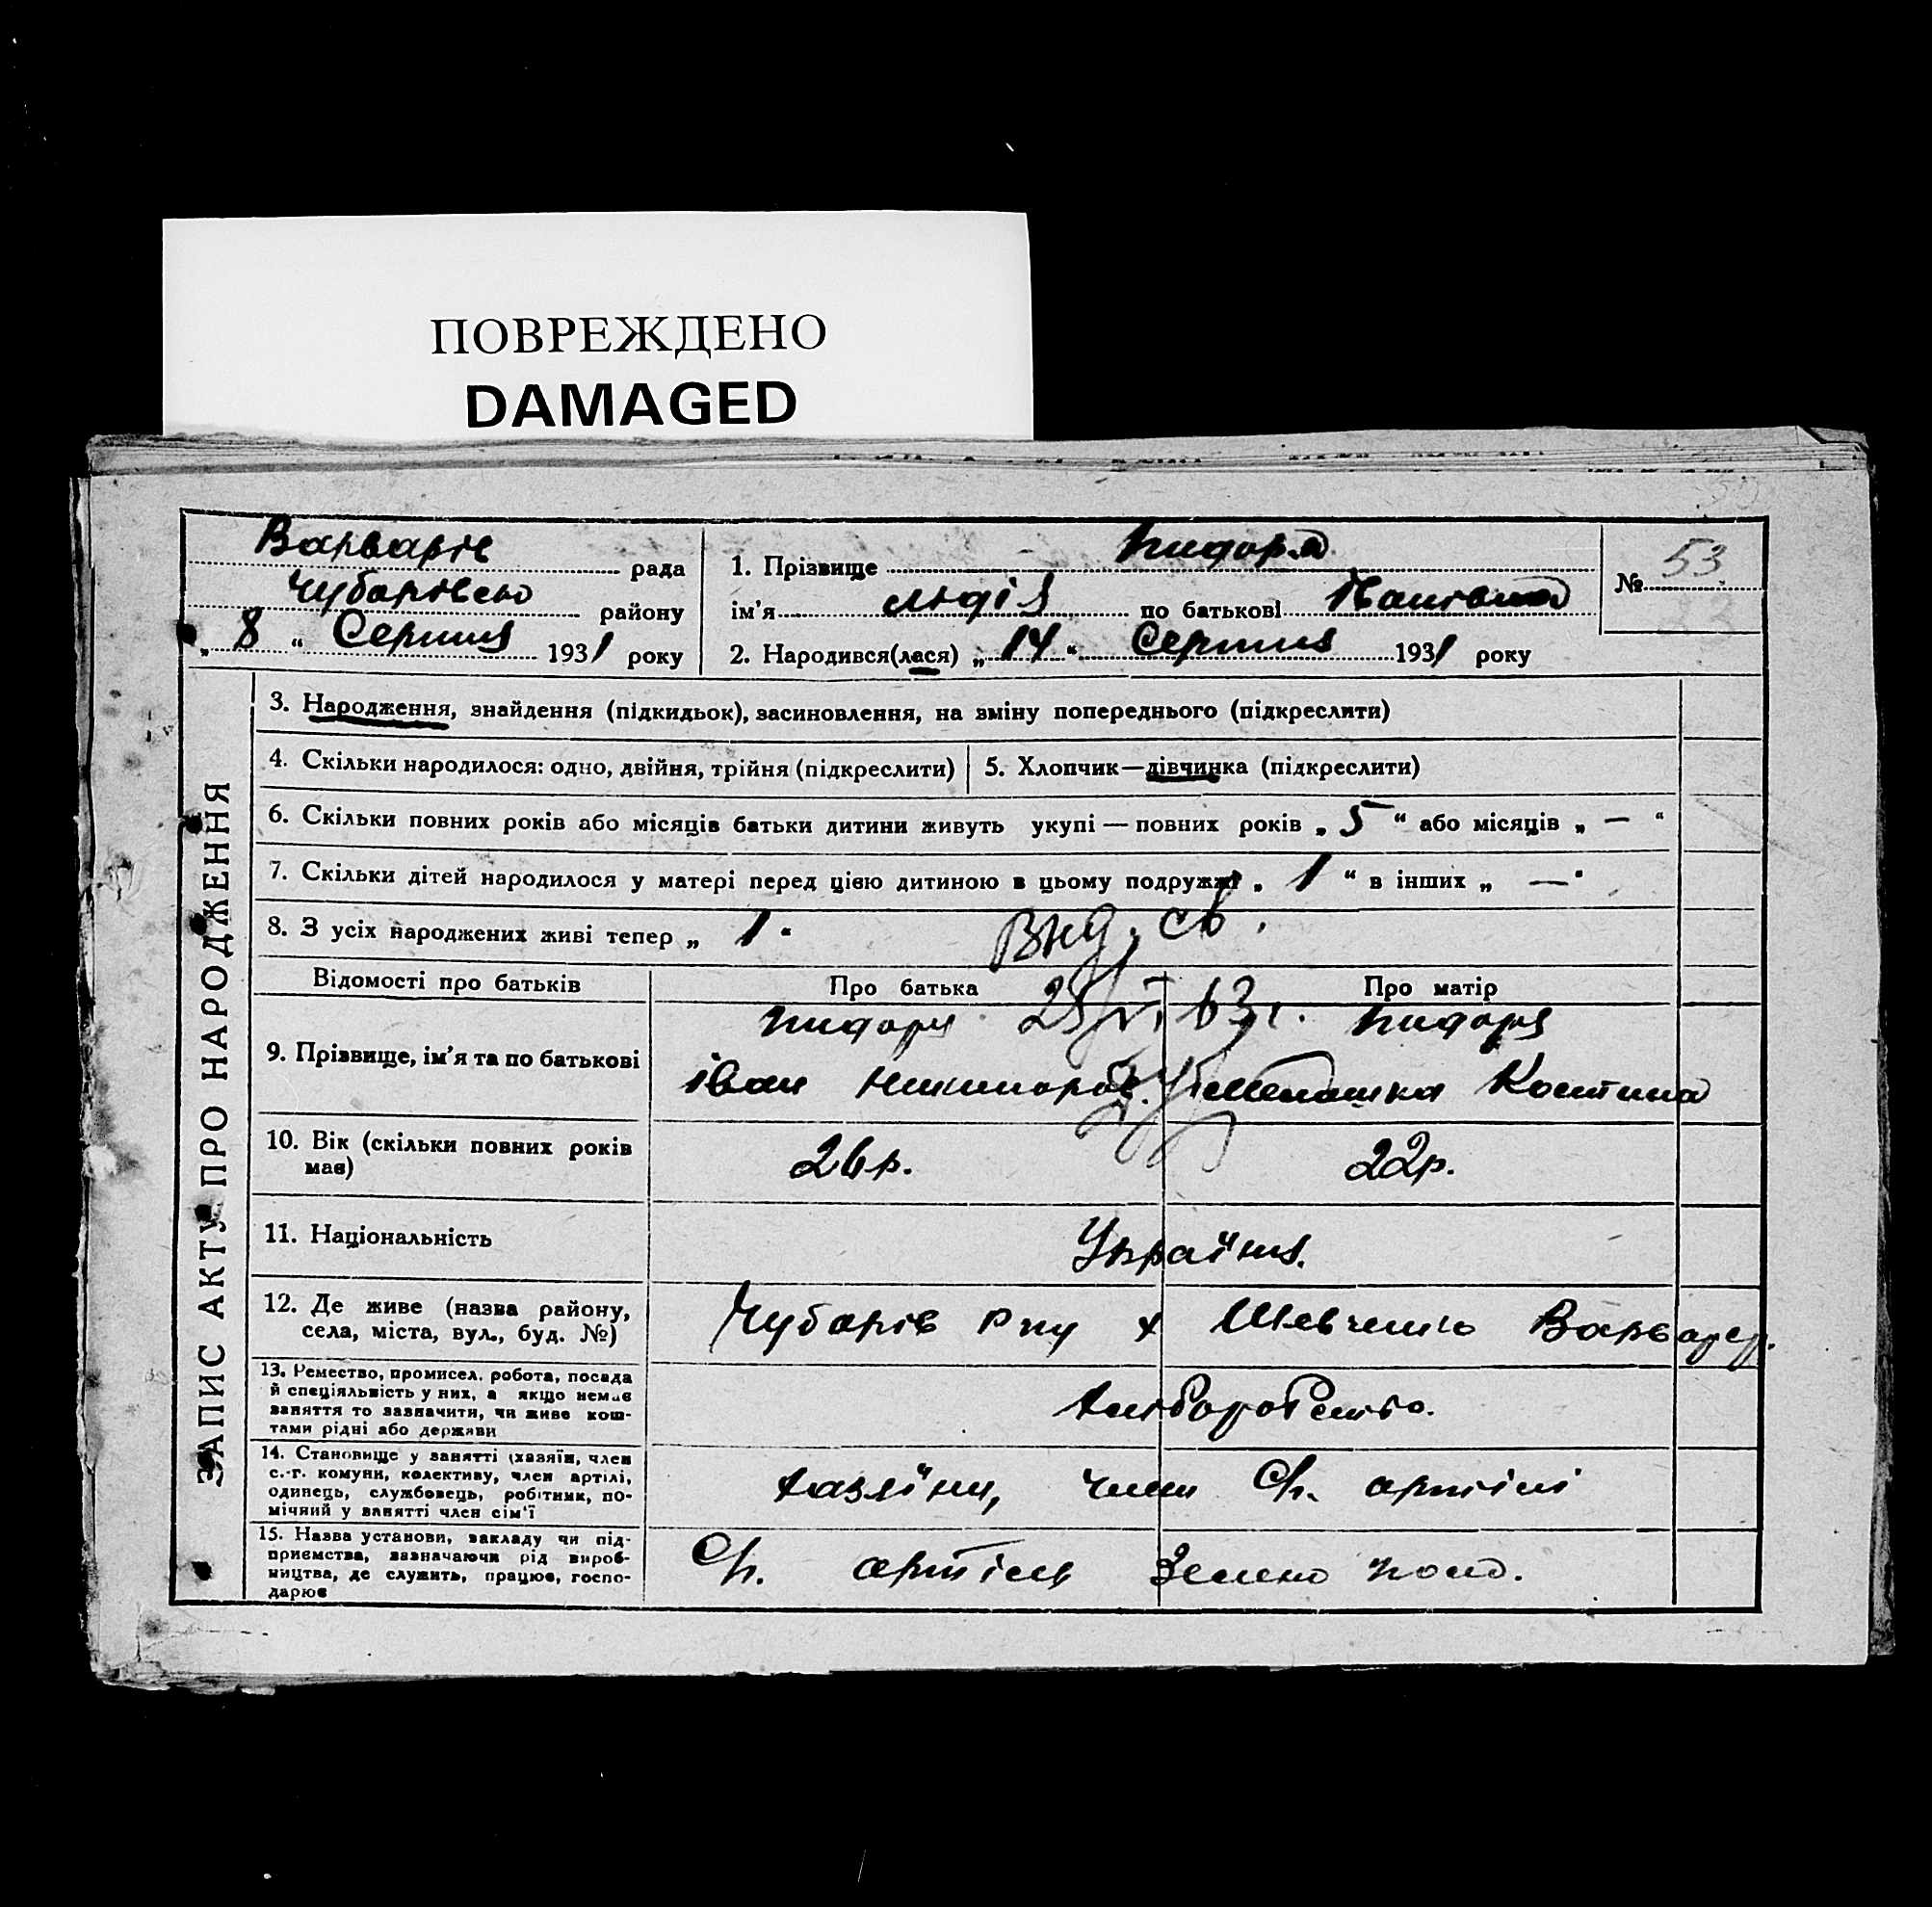 ПОВРЕЖДЕНО
DAMAGED
Варварів рада
Чубарівсько району
„ 8 “ Серпня 1931 року
1. Прізвище
ім'я Лидія по батькові Іванівна
2. Народився(лася) „ 14 “ Серпня 1931 року
№ 53
ЗАПИС АКТУ ПРО НАРОДЖЕННЯ
3. Народження, знайдення (підкидьок), засиновлення, на зміну попереднього (підкреслити)
4. Скільки народилося: одно, двійня, трійня (підкреслити)
5. Хлопчик—дівчинка (підкреслити)
6. Скільки повних років або місяців батьки дитини живуть укупі — повних років „ 5 “ або місяців „ — “
7. Скільки дітей народилося у матері перед цією дитиною в цьому подружжі „ 1 “ в інших „ — “
8. З усіх народжених живі тепер „ 1 “
Відомості про батьків
Про батька
Про матір
9. Прізвище, ім'я та по батькові
Іван
10. Вік (скільки повних років має)
26 р.
22 р.
11. Національність
Україн.
12. Де живе (назва району,
села, міста, вул., буд. №)
Чубарів р-ну х Шевченко
13. Ремество, промисел. робота, посада
й спеціяльність у них, а якщо немає
заняття то зазначити, чи живе кош-
тами рідні або держави
Хліборобство.
14. Становище у занятті (хазяїн, член
с.-г. комуни, колективу, член артілі,
одинець, службовець, робітник, по-
мічний у занятті член сім'ї
хазяїни, члени артілі
15. Назва установи, закладу чи під-
приємства, зазначаючи рід вироб-
ництва, де служить, працює, госпо-
дарює
артіль